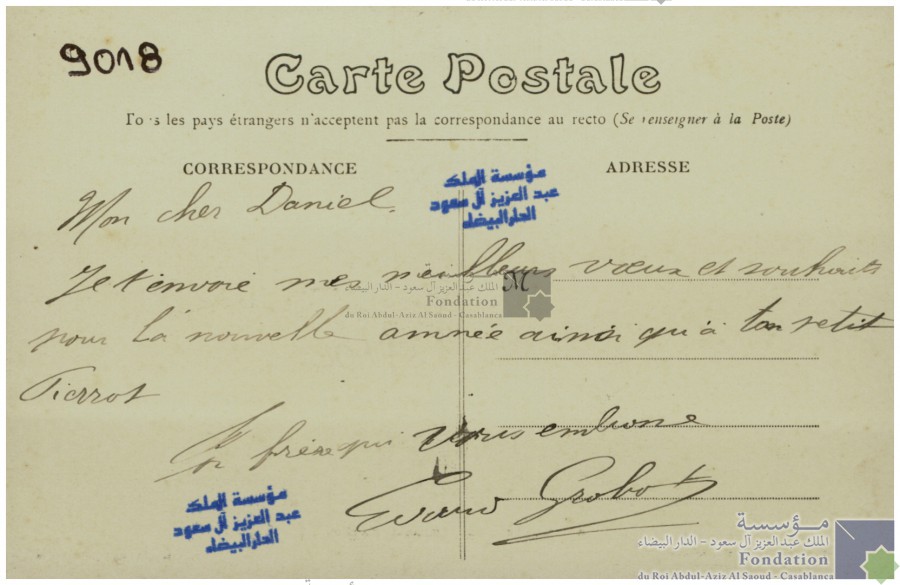 9018
Carte Postale
Tous les pays étrangers n'acceptent pas la correspondance au recto (Se renseigner à la Poste)
CORRESPONDANCE
ADRESSE
مؤسسة الملك
عبد العزيز آل سعود
الدار البيضاء
Mon cher Daniel.
Je t'envoie mes meilleurs vœux et souhaits
pour la nouvelle année ainsi qu'à ton petit
Pierrot
frère qui vous embrasse
Grobot
الملك عبد العزيز آل سعود - الدار البيضاء
Fondation
du Roi Abdul-Aziz Al Saoud - Casablanca
مؤسسة الملك
عبد العزيز آل سعود
الدار البيضاء
مؤسسة
الملك عبد العزيز آل سعود - الدار البيضاء
Fondation
du Roi Abdul-Aziz Al Saoud - Casablanca